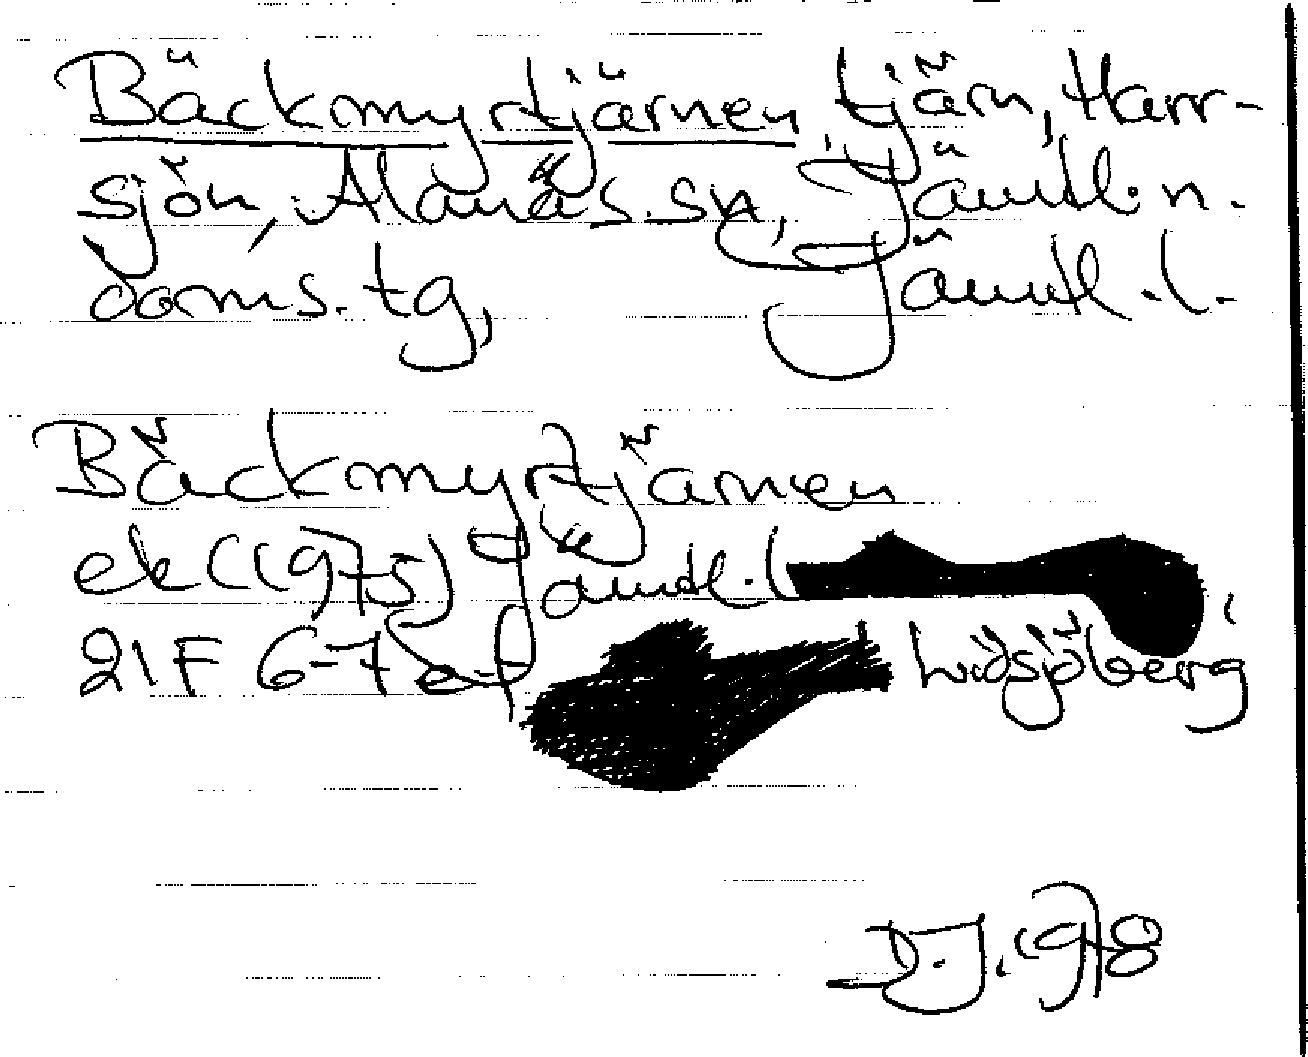 Bäckmyrtjärnen, tjärn, Harr-
sjön, Alanäs sn, Jämtl. n.
doms. tg, Jämtl. l.
Bäckmyrtjärnen
ek (1975) Jämtl. l
21F 6-7 e-f Lidsjöberg
D.J. 1978